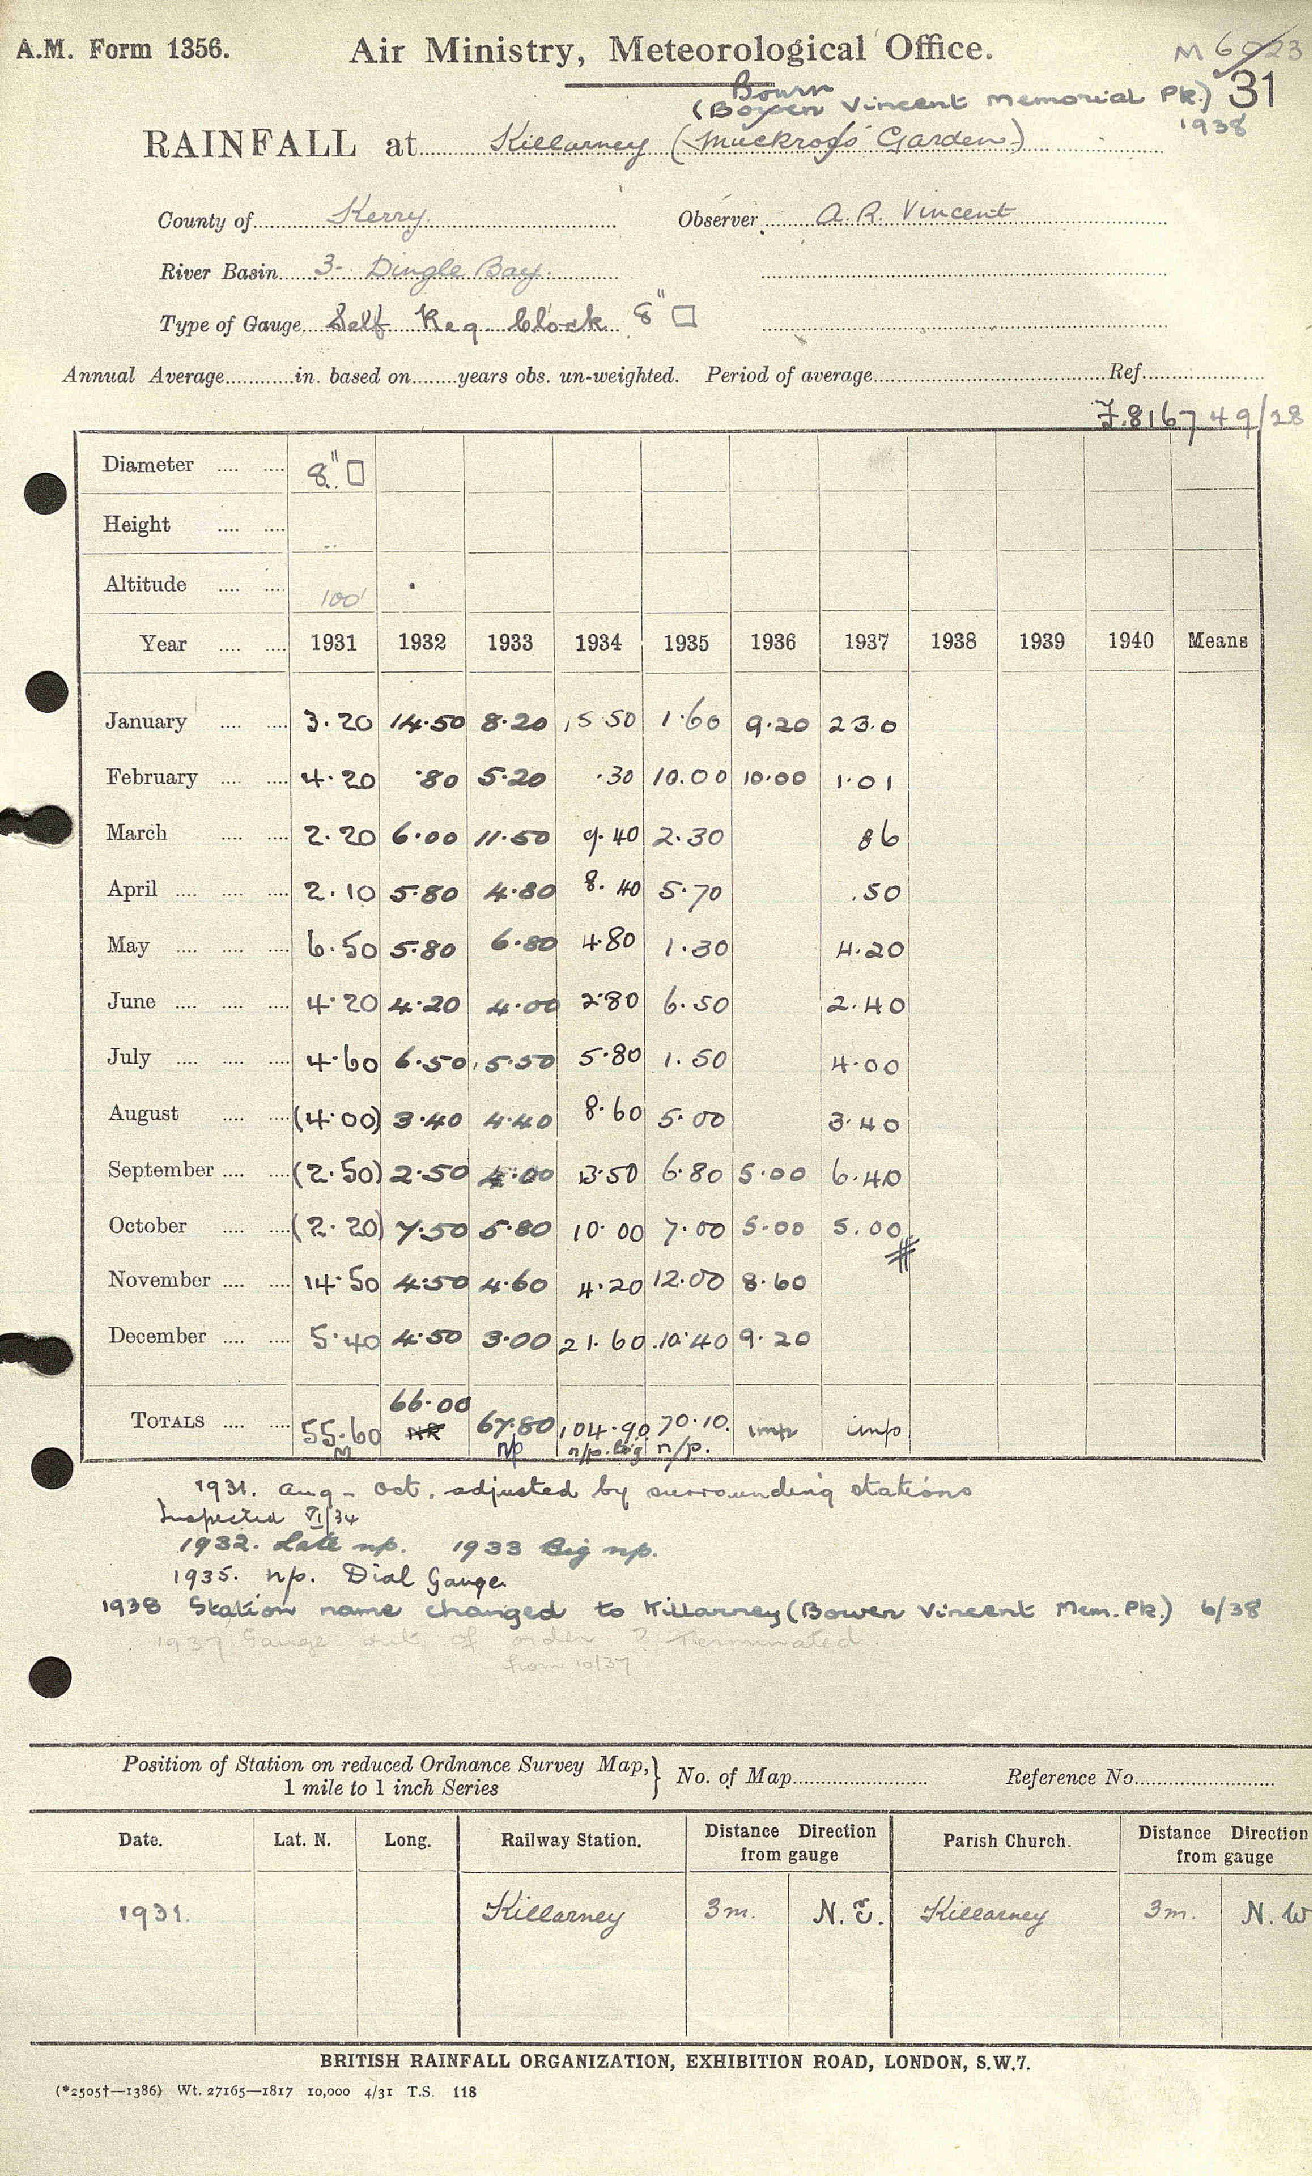 A.M. Form 1356. Air Ministry, Meteorological Office. M 6023
31
Bourn
(Bowen Vincent Memorial Pk.)
1938
RAINFALL at Killarney (Muckross Garden)
County of Kerry. Observer A. R. Vincent
River Basin 3- Dingle Bay.
Type of Gauge Self Reg. Clock 8" □
Annual Average in. based on years obs. un-weighted. Period of average Ref
F.816749/28
Diameter 8" □
Height
Altitude 100'
Year 1931 1932 1933 1934 1935 1936 1937 1938 1939 1940 Means
January 3.20 14.50 8.20 15.50 1.60 9.20 23.0
February 4.20 .80 5.20 .30 10.00 10.00 1.01
March 2.20 6.00 11.50 9.40 2.30 86
April 2.10 5.80 4.80 8.40 5.70 .50
May 6.50 5.80 6.80 4.80 1.30 4.20
June 4.20 4.20 4.00 2.80 6.50 2.40
July 4.60 6.50 5.50 5.80 1.50 4.00
August (4.00) 3.40 4.40 8.60 5.00 3.40
September (2.50) 2.50 4.00 13.50 6.80 5.00 6.40
October (2.20) 7.50 5.80 10.00 7.00 5.00 5.00 #
November 14.50 4.50 4.60 4.20 12.00 8.60
December 5.40 4.50 3.00 21.60 10.40 9.20
TOTALS 55.60 66.00 67.80 104.90 70.10 imp imp
M NR np n/p. big n/p.
1931. Aug - Oct. adjusted by surrounding stations
Inspected VI/34
1932. Late np. 1933 Big np.
1935. np. Dial Gauge
1938 Station name changed to Killarney (Bowen Vincent Mem. Pk.) 6/38
1937 Gauge out of order ? Terminated
from 10/37
Position of Station on reduced Ordnance Survey Map,
1 mile to 1 inch Series } No. of Map Reference No.
Date. Lat. N. Long. Railway Station. Distance Direction from gauge Parish Church. Distance Direction from gauge
1931. Killarney 3m. N.E. Killarney 3m. N.W
BRITISH RAINFALL ORGANIZATION, EXHIBITION ROAD, LONDON, S.W.7.
(*2505†—1386) Wt. 27165—1817 10,000 4/31 T.S. 118